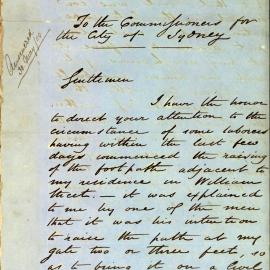 To the Commissioners for
the City of Sydney
Answered
Gentlemen
I have the honor
to direct your attention to the
circumstance of some laborers
having within the last few
days commenced the raising
of the footpath adjacent to
my residence in William
Street. it was explained
to me by one of the men
that it was his intention
to raise the path at my
gate two or three feet, so
as to bring it on a level